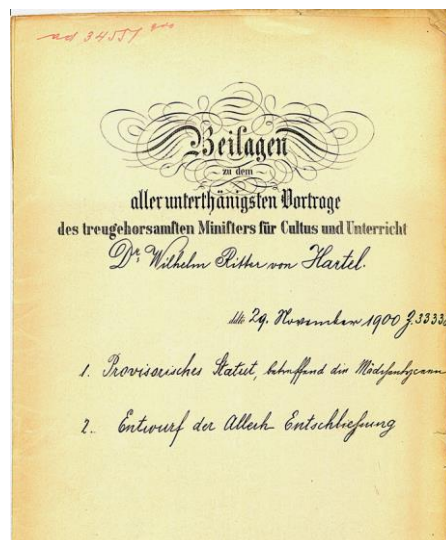 ad 34557
Beilagen
zu dem
allerunterthänigsten Vortrage
des treugehorsamsten Ministers für Cultus und Unterricht
Dr. Wilhelm Ritter von Hartel.
ddto 29. November 1900 Z. 33336
1. Provisorisches Statut, betreffend die
2. Entwurf der Allerh. Entschließung